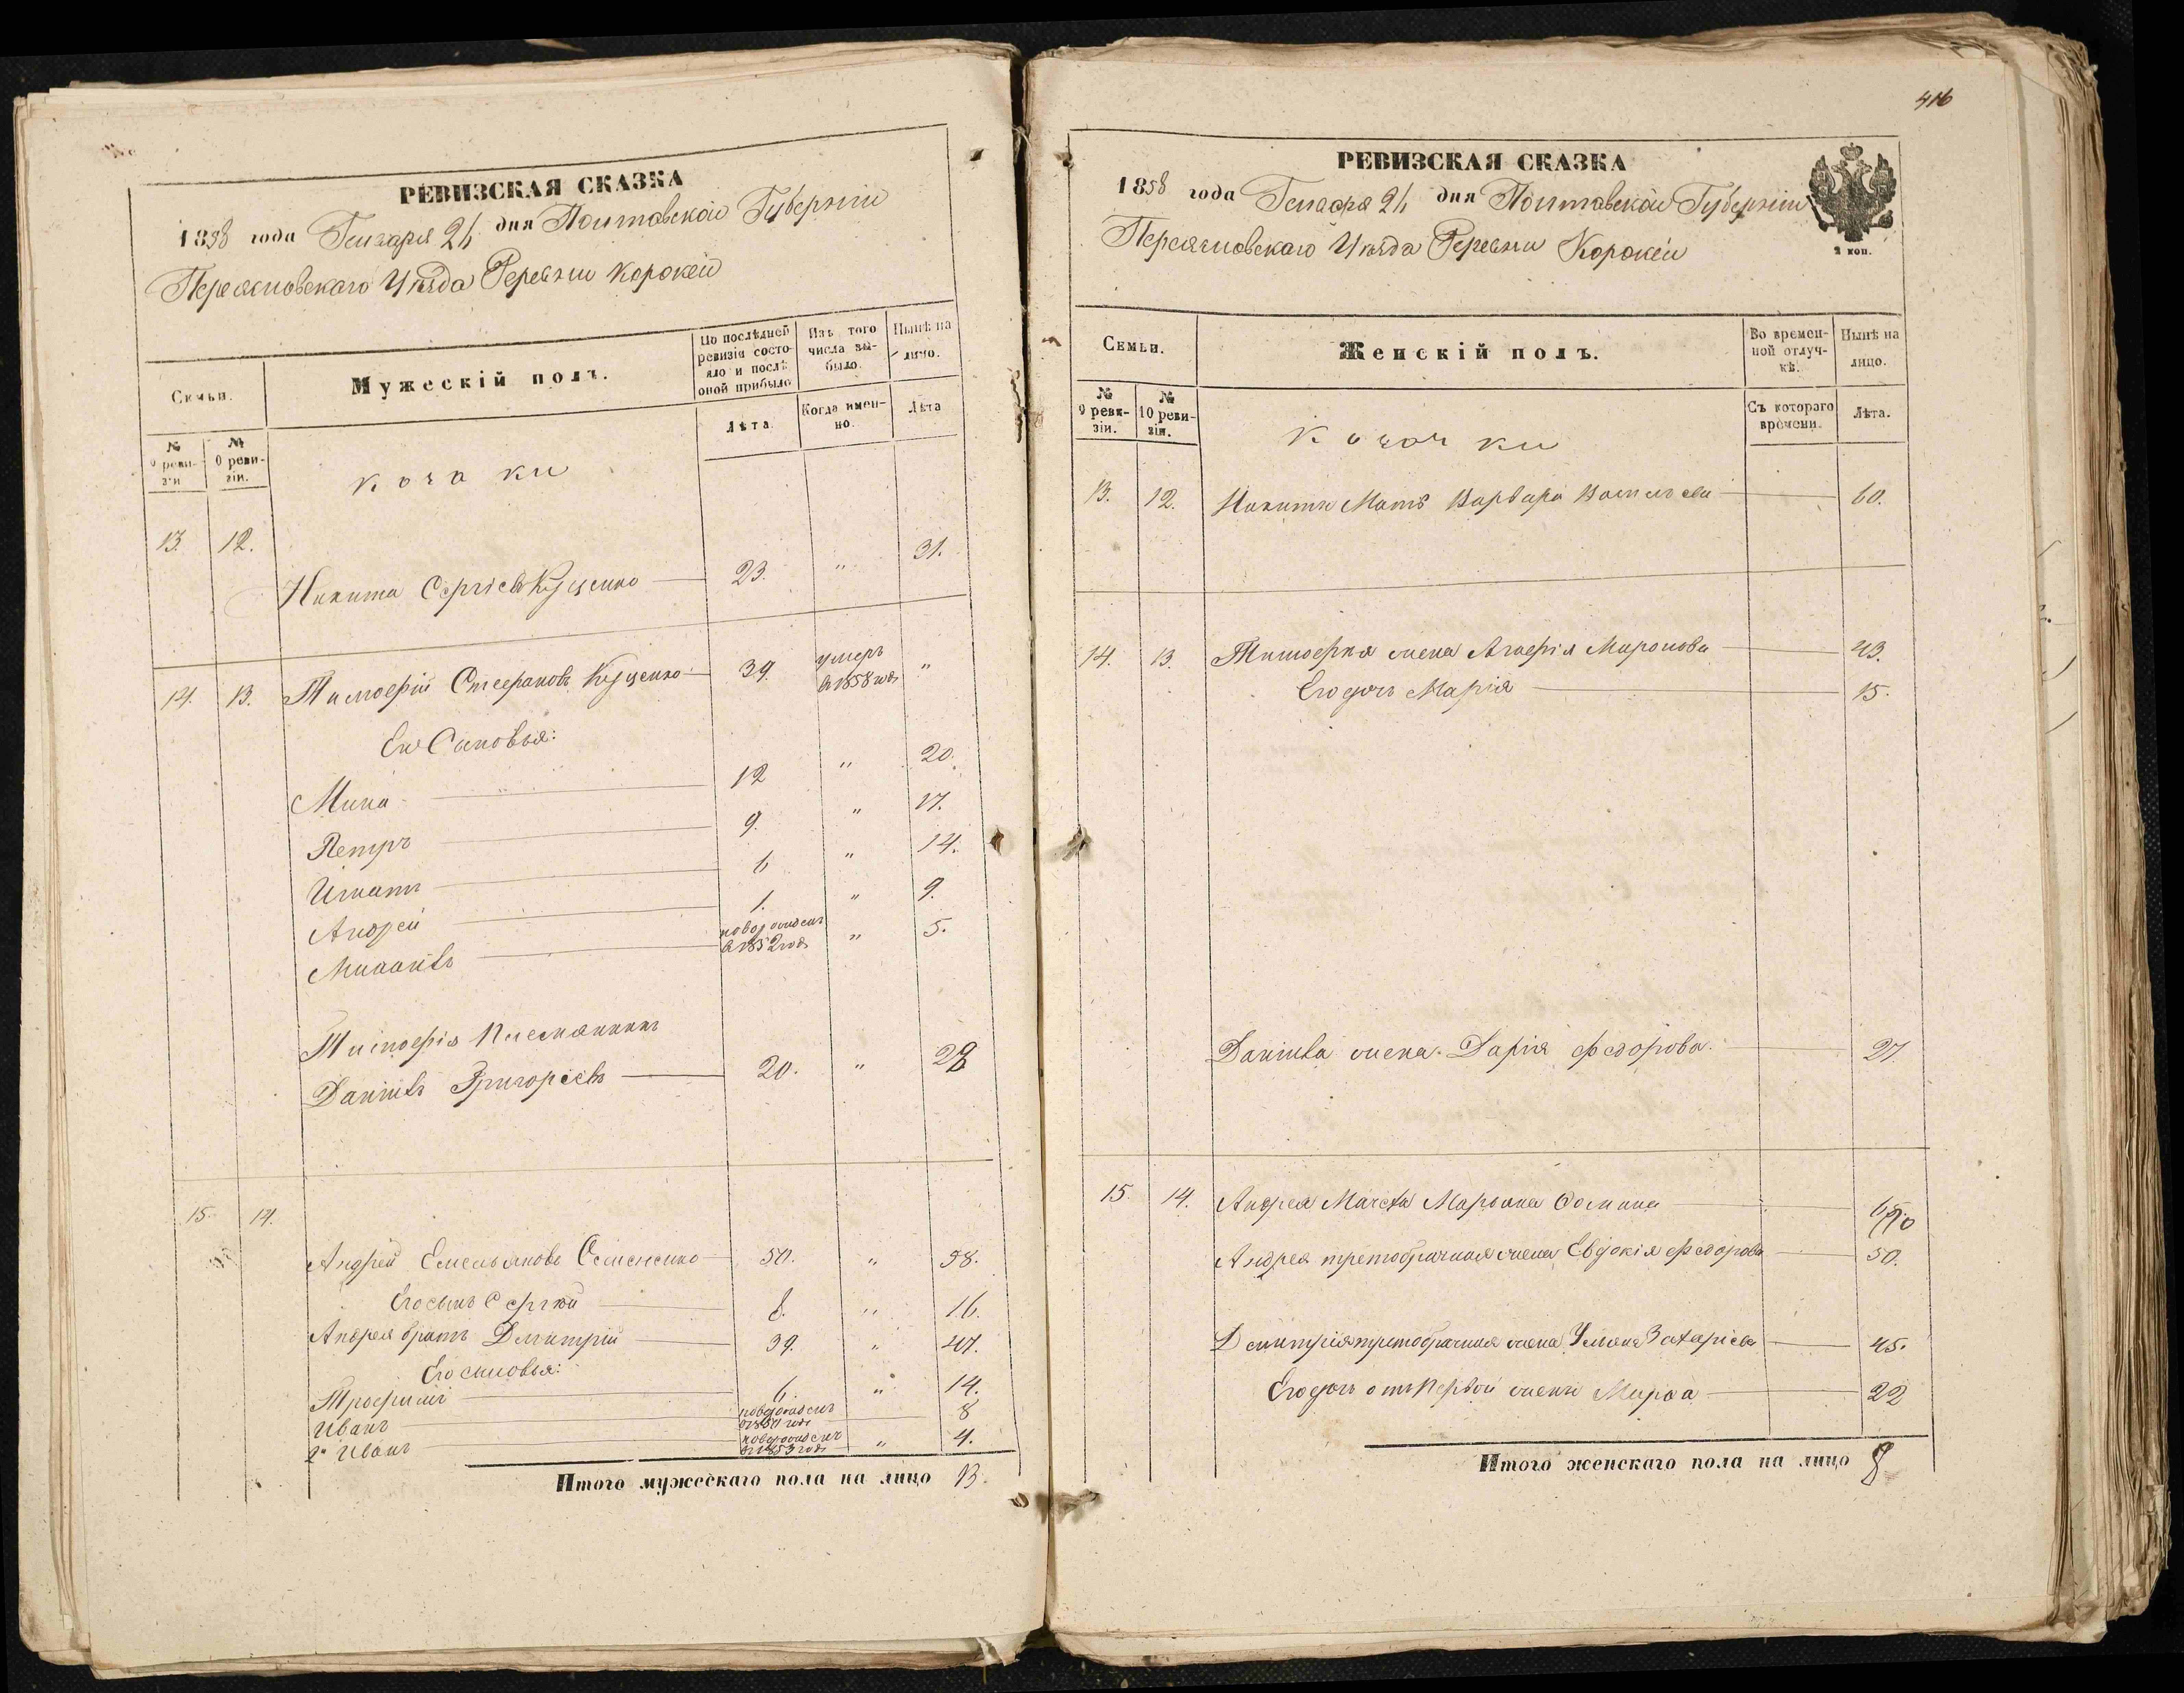 РЕВИЗСКАЯ СКАЗКА
1858 года Генваря 24 дня Полтавской Губерніи
Переяславскаго Уѣзда Деревни
Семьи.
Мужескій полъ.
По послѣдней ревизіи состояло и послѣ оной прибыло
Изъ того числа выбыло.
Нынѣ на лицо.
№ 9 ревизіи
№ 10 ревизіи.
Лѣта.
Когда именно.
Лѣта
козаки
13. 12.
Никита Сергіевъ Куценко 23. " 31.
14. 13. Тимофій Стефановъ Куценко 39. умеръ въ 1858 годѣ "
Его Сыновья:
Мина 12 " 20.
Петръ 9. " 17.
Игнатъ 6 " 14.
Андрей 1. " 9.
новорожденъ въ 1852 годѣ " 5.
Тимофія Племянникъ
Даніилъ Григоріевъ 20. " 28
15. 14.
Андрей Емельяновъ 50. " 58.
Его сынъ Сергѣй 8. " 16.
Андрея братъ Дмитрій 39. " 47.
Его сыновья:
Трофимъ 6. " 14.
Иванъ новорожденъ въ 1850 годѣ 8
2й Иванъ новорожденъ въ 1853 годѣ " 4.
Итого мужескаго пола на лицо 13.
416
РЕВИЗСКАЯ СКАЗКА
1858 года Генваря 24 дня Полтавской Губерніи
2 коп.
Переяславскаго Уѣзда Деревни
Семьи.
Женскій полъ.
Во временной отлучкѣ.
Нынѣ на лицо.
№ 9 ревизіи.
№ 10 ревизіи.
Съ котораго времени.
Лѣта.
козачки
13. 12. Никиты Мать Варвара Васильева 60.
14. 13. Тимофія жена Агафія Миронова 43.
Его дочь Марія 15.
Даніила жена Дарія Федорова. 27.
15. 14. Андрея Мачеха Марьяна 70
Андрея третобрачная жена Евдокія Федорова 50.
Дмитрія третобрачная жена Ульяна Захаріева 45.
Его дочь отъ первой жены 22
Итого женскаго пола на лицо 8